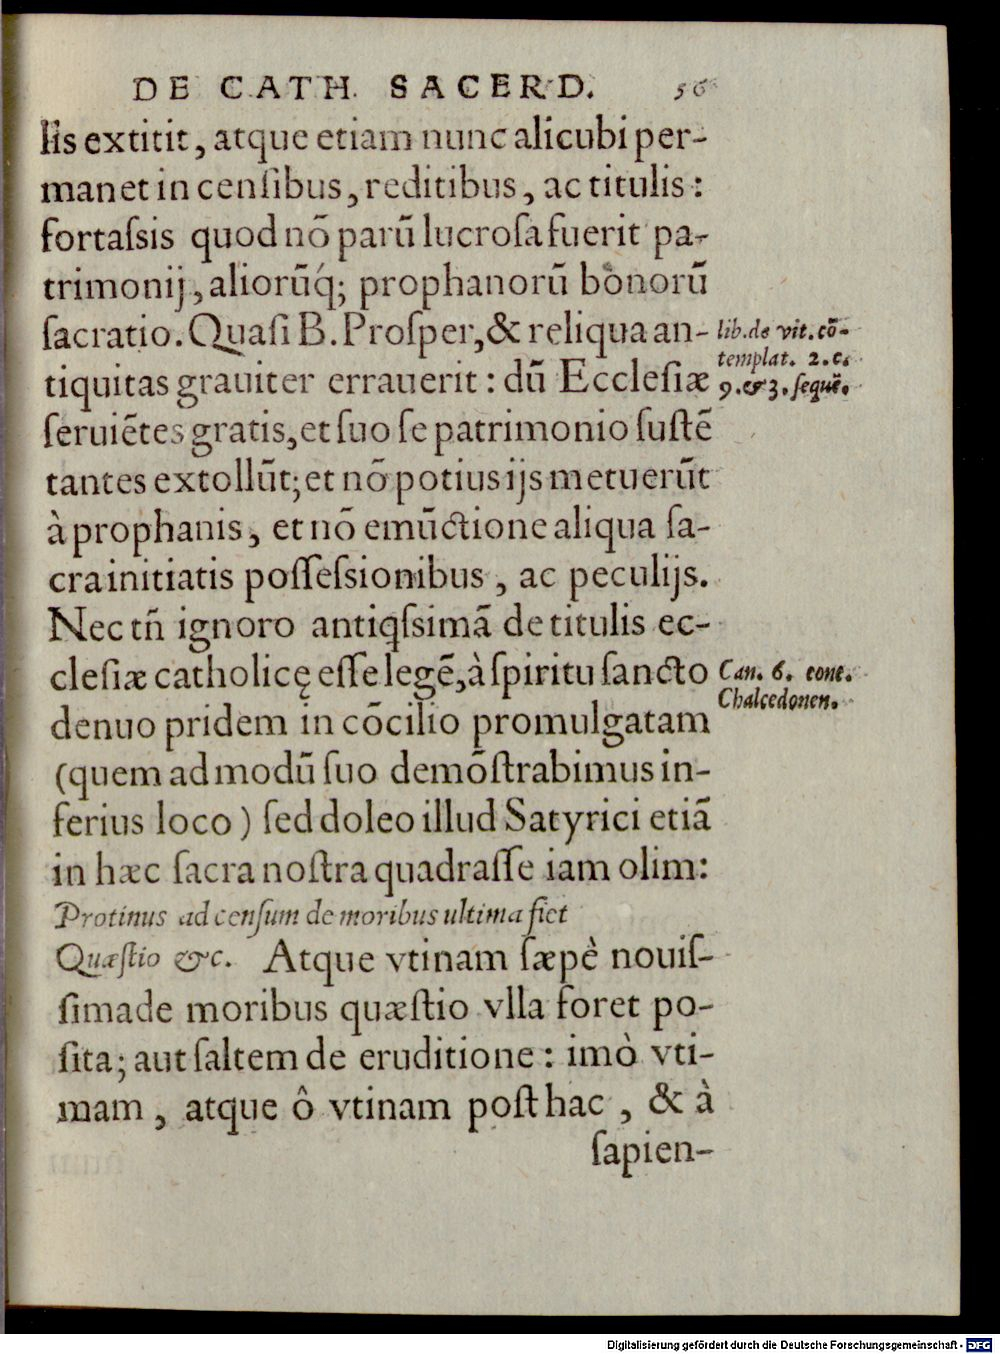 DE CATH. SACERD. 56
lis extitit, atque etiam nunc alicubi per-
manet in censibus, reditibus, ac titulis:
fortaſsis quod nõ parũ lucroſa fuerit pa-
trimonij, aliorũq́; prophanorũ bonorũ
ſacratio. Quaſi B. Proſper, & reliqua an-
lib. de vit. cõ-
templat. 2. c.
9. & 3. ſequẽ.
tiquitas grauiter errauerit: dũ Eccleſiæ
ſeruiẽtes gratis, et ſuo ſe patrimonio ſuſtẽ
tantes extollũt; et nõ potius ijs metuerũt
à prophanis, et nõ emũctione aliqua ſa-
cra initiatis poſſeſsionibus, ac peculijs.
Nec tñ ignoro antiqſsimã de titulis ec-
cleſiæ catholicę eſſe legẽ, à ſpiritu ſancto
Can. 6. conc.
Chalcedonen.
denuo pridem in cõcilio promulgatam
(quem admodũ ſuo demõſtrabimus in-
ferius loco) ſed doleo illud Satyrici etiã
in hæc ſacra noſtra quadraſſe iam olim:
Protinus ad cenſum de moribus ultima fiet
Quæſtio &c. Atque vtinam ſæpè nouiſ-
ſima de moribus quæſtio vlla foret po-
ſita; aut ſaltem de eruditione: imò vti-
mam, atque ô vtinam poſt hac, & à
ſapien-
Digitalisierung gefördert durch die Deutsche Forschungsgemeinschaft - DFG